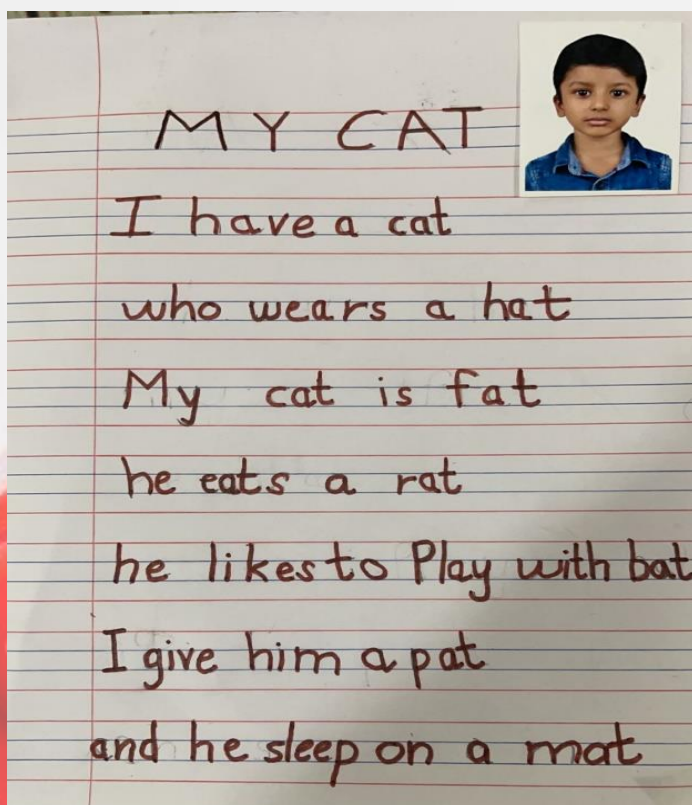 MY CAT
I have a cat
who wears a hat
My cat is fat
he eats a rat
he likes to Play with bat
I give him a pat
and he sleep on a mat